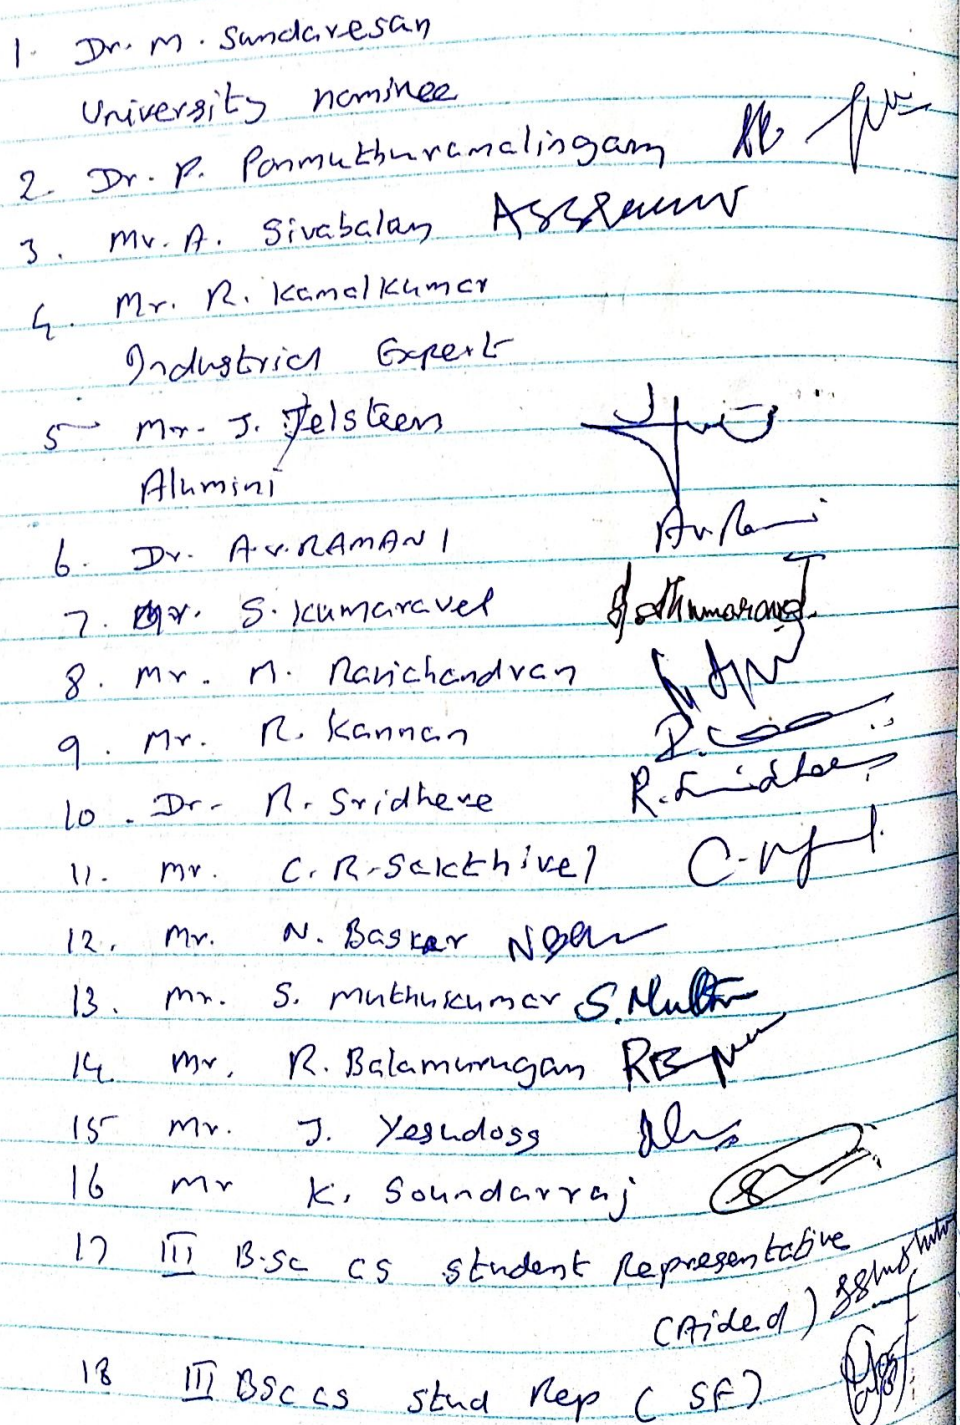 1. Dr. M. Sundaresan
University nominee
2. Dr. P. Ponmuthuramalingam
3. Mr. A. Sivabalan
4. Mr. R. Kamalkumar
Industrial Expert
5 Mr. J. Jelsteen
Alumini
6. Dr. A.V. RAMANI
7. Mr. S. Kumaravel
8. Mr. M. Ravichandran
9. Mr. R. Kannan
10. Dr. R. Sridhere R. Sridhar
11. Mr. C. R. Sakthivel
12. Mr. N. Baskar
13. Mr. S. Muthukumar S. Muthu
14. Mr. R. Balamurugan
15 Mr. J. Yesudoss
16 Mr K. Soundarraj
17 III B.Sc CS Student Representative
(Aided)
18 III BSc CS Stud Rep (SF)